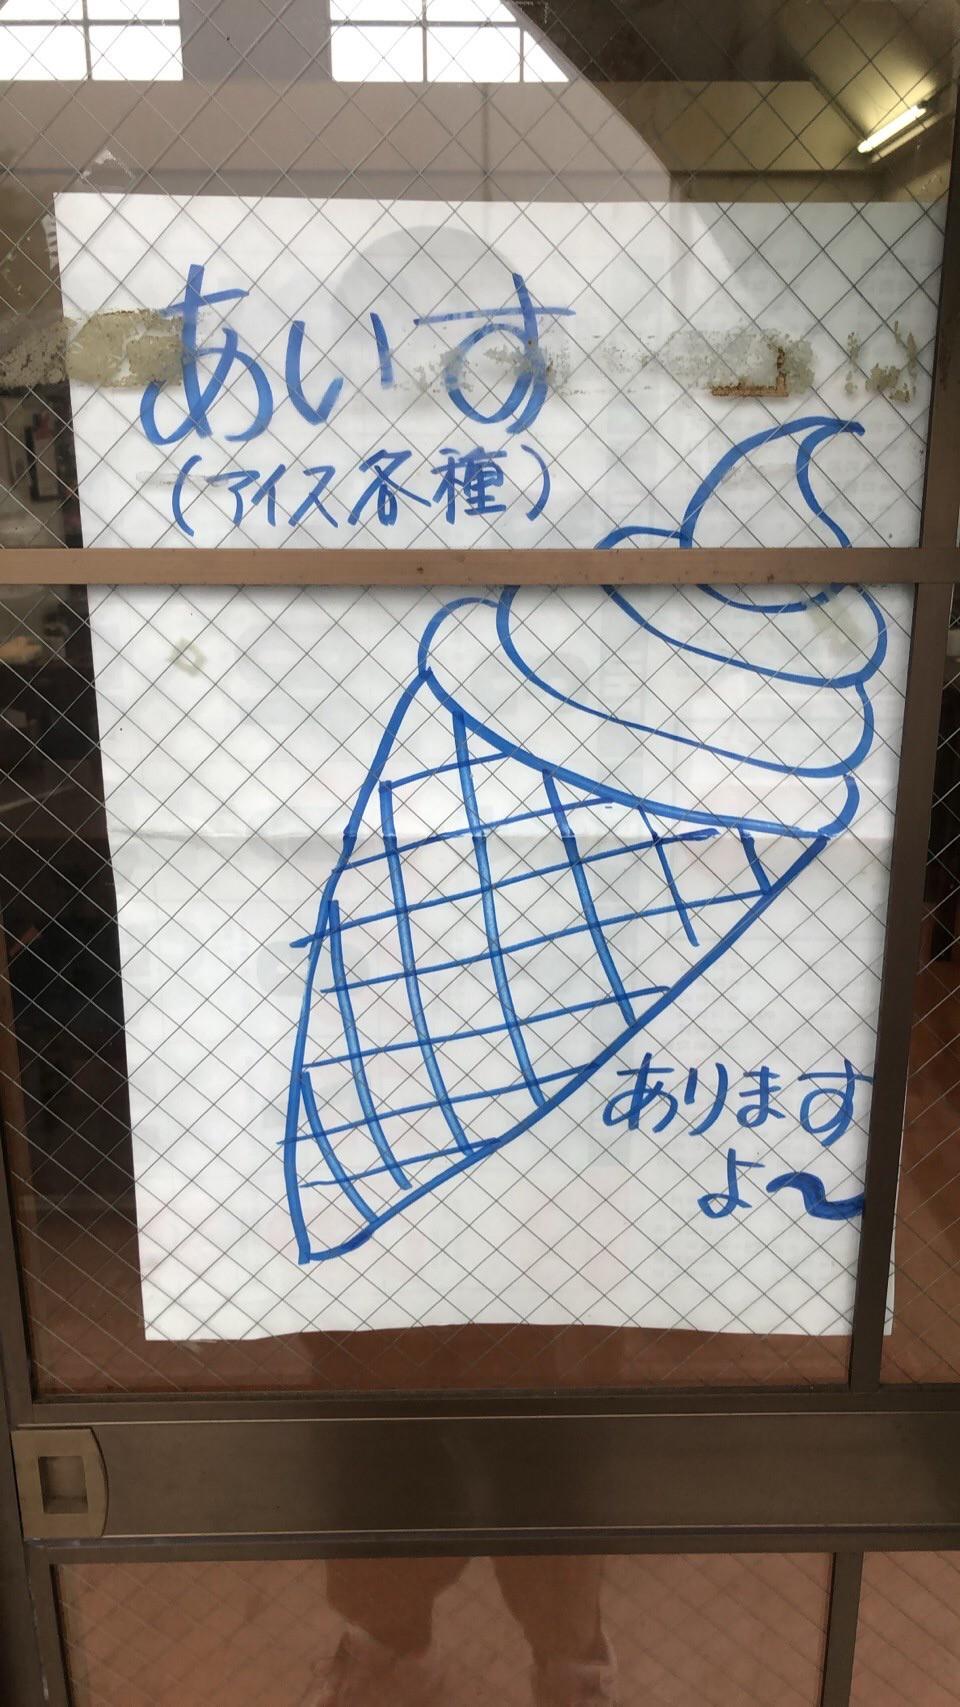 あいす
（アイス各種）
あります
よ〜